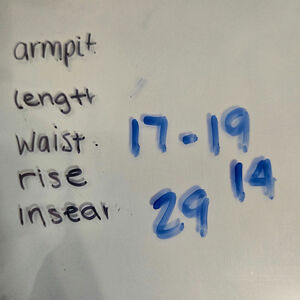 armpit
length
waist. 17-19
rise 14
insear 29